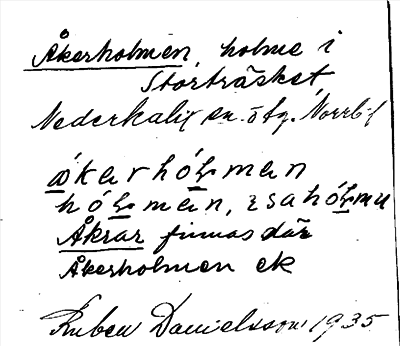 Åkerholmen, holme i
Storträsket,
Nederkalix sn. o tg. Norrb. l
åkarhólmen
hólmen,
Åkrar finnas där
Åkerholmen ek
Ruben Danielsson 1935